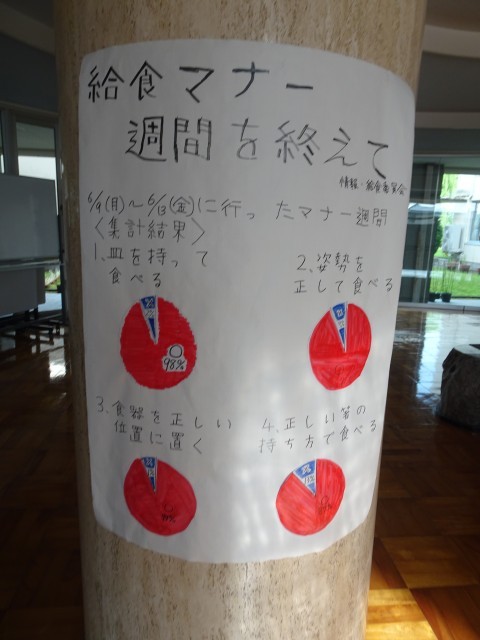 給食マナー
週間を終えて
情報・給食委員会
6/9(月)～6/13(金)に行ったマナー週間
〈集計結果〉
1.皿を持って
食べる
98%
2.姿勢を
正して食べる
3.食器を正しい
位置に置く
4.正しい箸の
持ち方で食べる